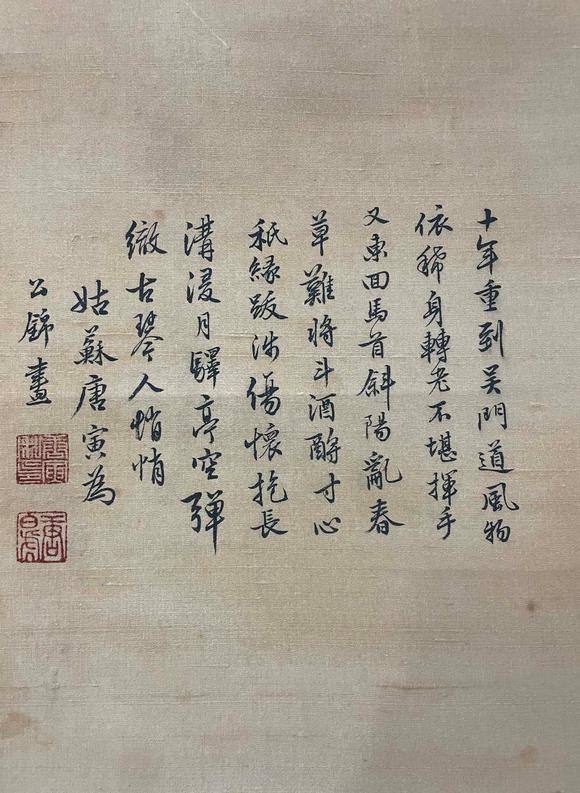 十年重到吴門道風物
依稀身轉老不堪揮手
又東回馬首斜陽亂春
草難將斗酒酹寸心
秖緣跋涉傷懷抱長
溝浸月驛亭空彈
徹古琴人悄悄
姑蘇唐寅為
公錦畫